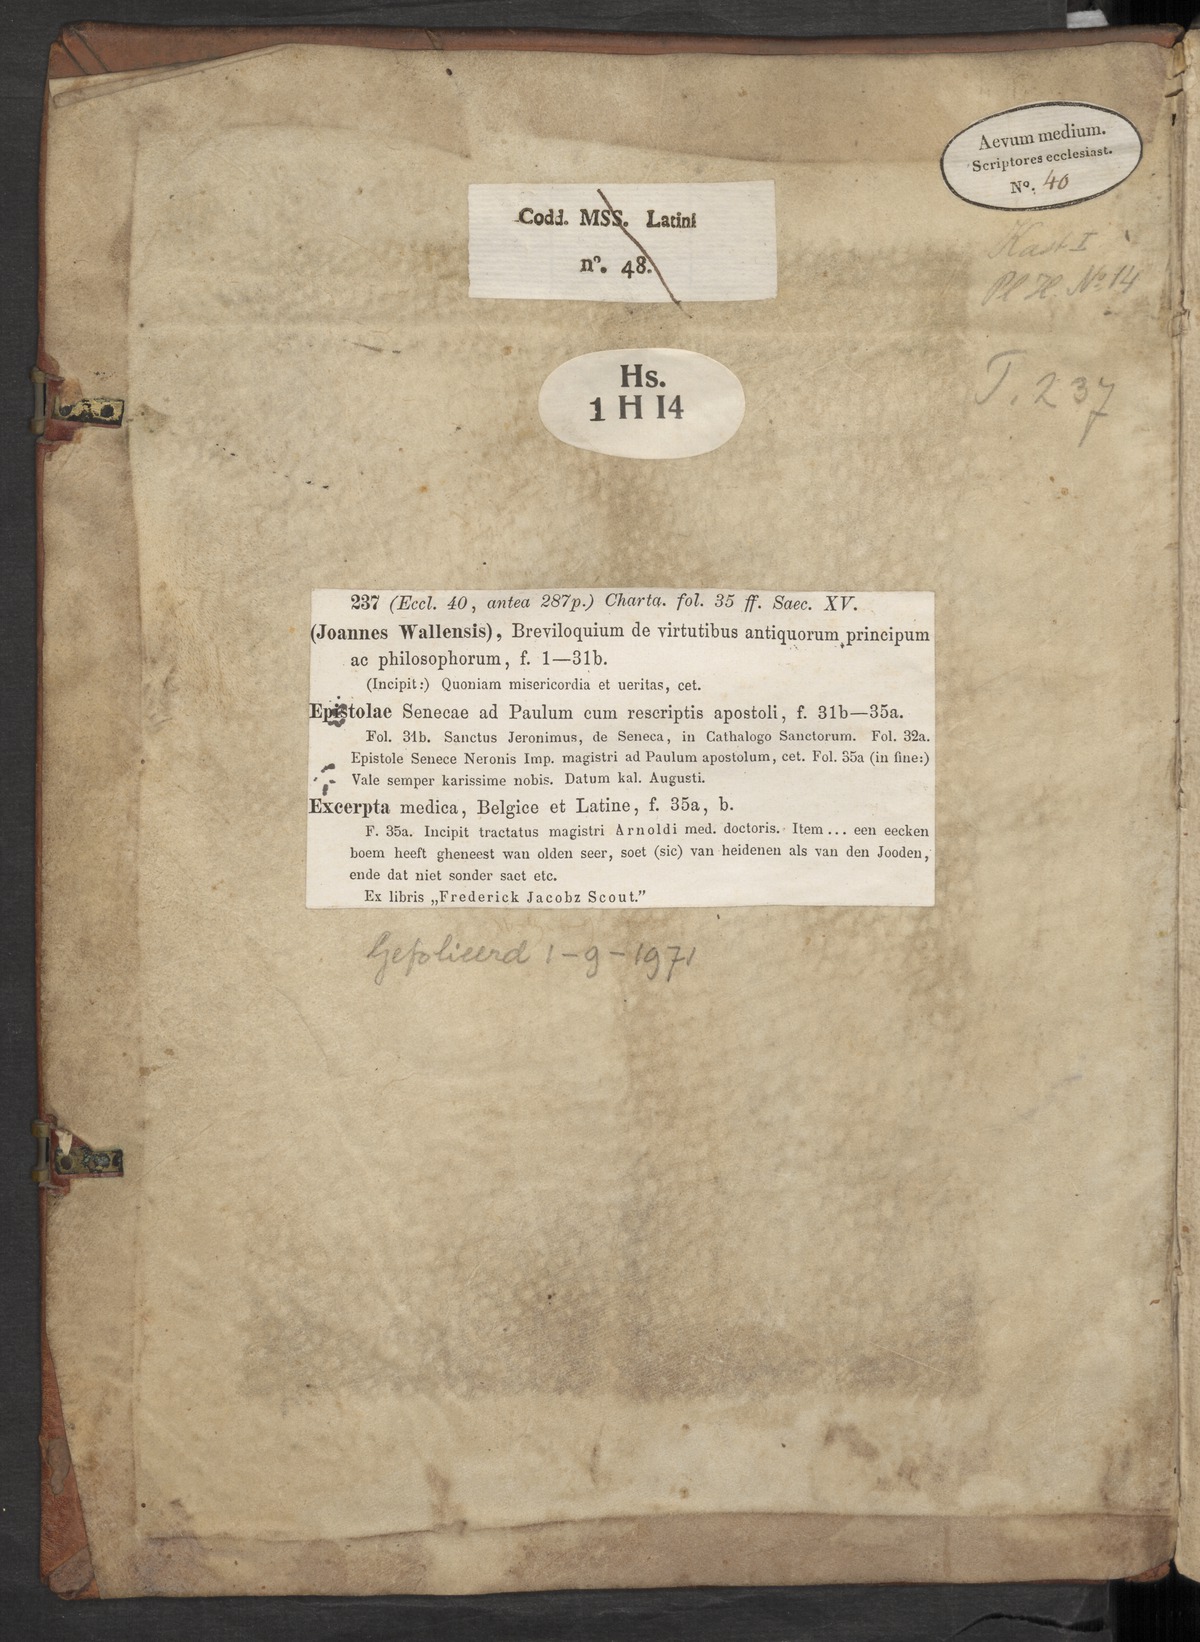 Aevum medium.
Scriptores ecclesiast.
Nº. 40
Codd. MSS. Latini
nº. 48.
Kast I
Pl H. Nº 14
Hs.
1 H I4
T. 237
237 (Eccl. 40, antea 287p.) Charta. fol. 35 ff. Saec. XV.
(Joannes Wallensis), Breviloquium de virtutibus antiquorum principum
ac philosophorum, f. 1—31b.
(Incipit:) Quoniam misericordia et ueritas, cet.
Epistolae Senecae ad Paulum cum rescriptis apostoli, f. 31b—35a.
Fol. 31b. Sanctus Jeronimus, de Seneca, in Cathalogo Sanctorum. Fol. 32a.
Epistole Senece Neronis Imp. magistri ad Paulum apostolum, cet. Fol. 35a (in fine:)
Vale semper karissime nobis. Datum kal. Augusti.
Excerpta medica, Belgice et Latine, f. 35a, b.
F. 35a. Incipit tractatus magistri Arnoldi med. doctoris. Item... een eecken
boem heeft gheneest wan olden seer, soet (sic) van heidenen als van den Jooden,
ende dat niet sonder saet etc.
Ex libris „Frederick Jacobz Scout.”
Gefolieerd 1-9-1971